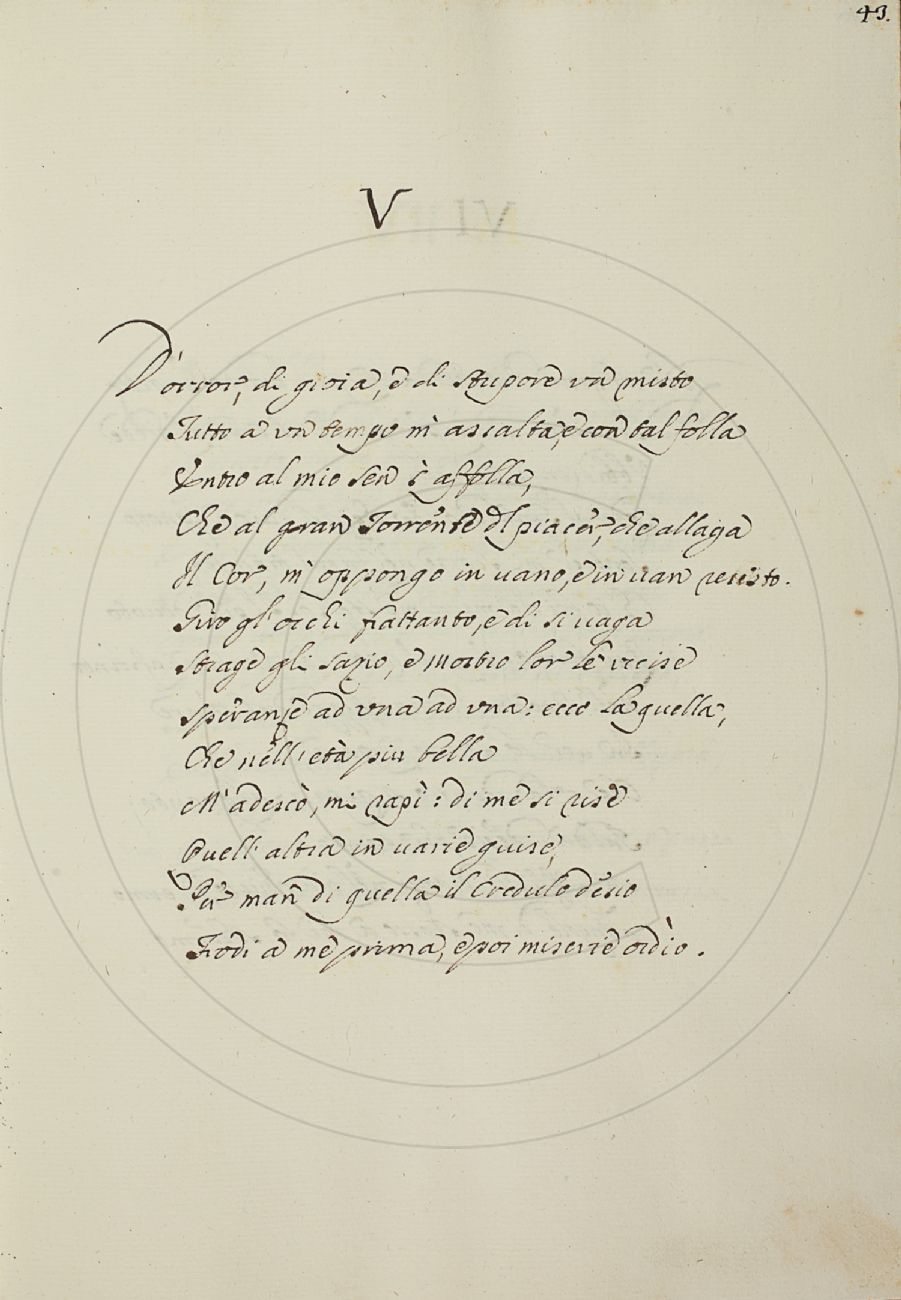 43.
V
D'orror, di gioia, e di stupore un misto
Tutto a un tempo m'assalta, e con tal folla
Entro al mio sen s'affolla,
Che al gran Torrente del piacer, che allaga
Il Cor, m'oppongo in uano, e in uan resisto.
Giro gl'occhi frattanto, e di si uaga
Strage gli sazio, e mostro lor le vccise
Speranze ad vna ad vna: ecco là quella,
Che nell'età piu bella
M'adescò, mi rapì: di me si rise
Quell'altra in uarie guise,
Per man di quella il Credulo desio
Frodi a me prima, e poi miserie ordìo.